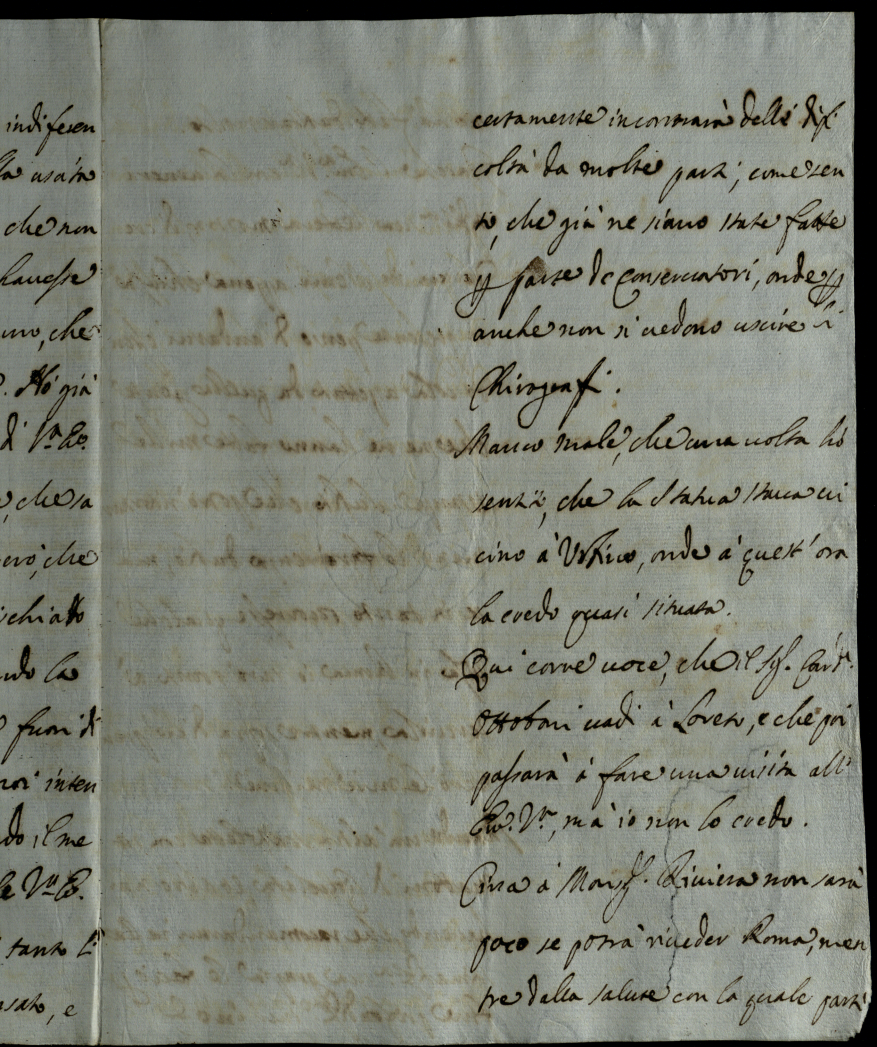 indifesen
la usata
che non
havesse
uno, che
Hò già
di V.ra Em.
che sa
però, che
schiatto
ndo la
fuori di
inten
do il me
le V.ra E.
tanto l'
nsato, e
certamente incontrarà delle difi
coltà da molte parti, come sen
to, che già ne siano state fatte
p parte de Conservatori, onde p
anche non si vedono uscire li
Chirografi.
Manco male, che una volta hò
sentito, che la Statua stava vi
cino à Urbino, onde à quest'ora
la credo quasi situata.
Qui corre voce, che il Sig.r Card.e
Ottoboni vadi à Loreto, e che poi
passarà à fare una visita all'
Em. V.ra, mà io non lo credo.
Circa à Mons.r Riviera non sarà
poco se potrà riveder Roma, men
tre dalla salute con la quale partì